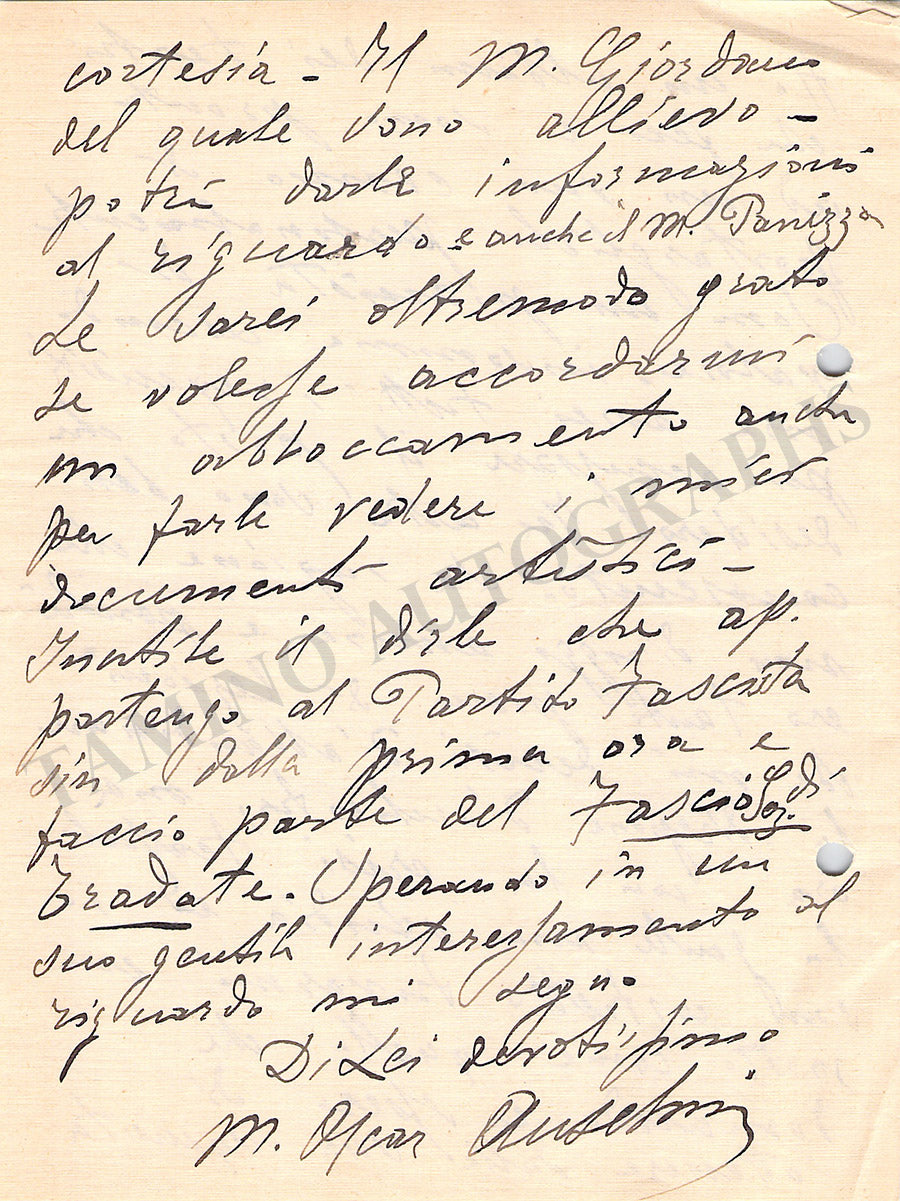 cortesia - Il M. Giordano
del quale sono allievo -
potrà darle informazioni
al riguardo e anche il M. Panizza
Le sarei oltremodo grato
se volesse accordarmi
un abboccamento anche
per farle vedere i miei
documenti artistici -
Inutile il dirle che ap.
partengo al Partito Fascista
sin dalla prima ora e
faccio parte del Fascio di
Tradate. Sperando in un
suo gentile interessamento al
riguardo mi segno
Di Lei devotissimo
M. Oscar Anselmi
TAMINO AUTOGRAPHS